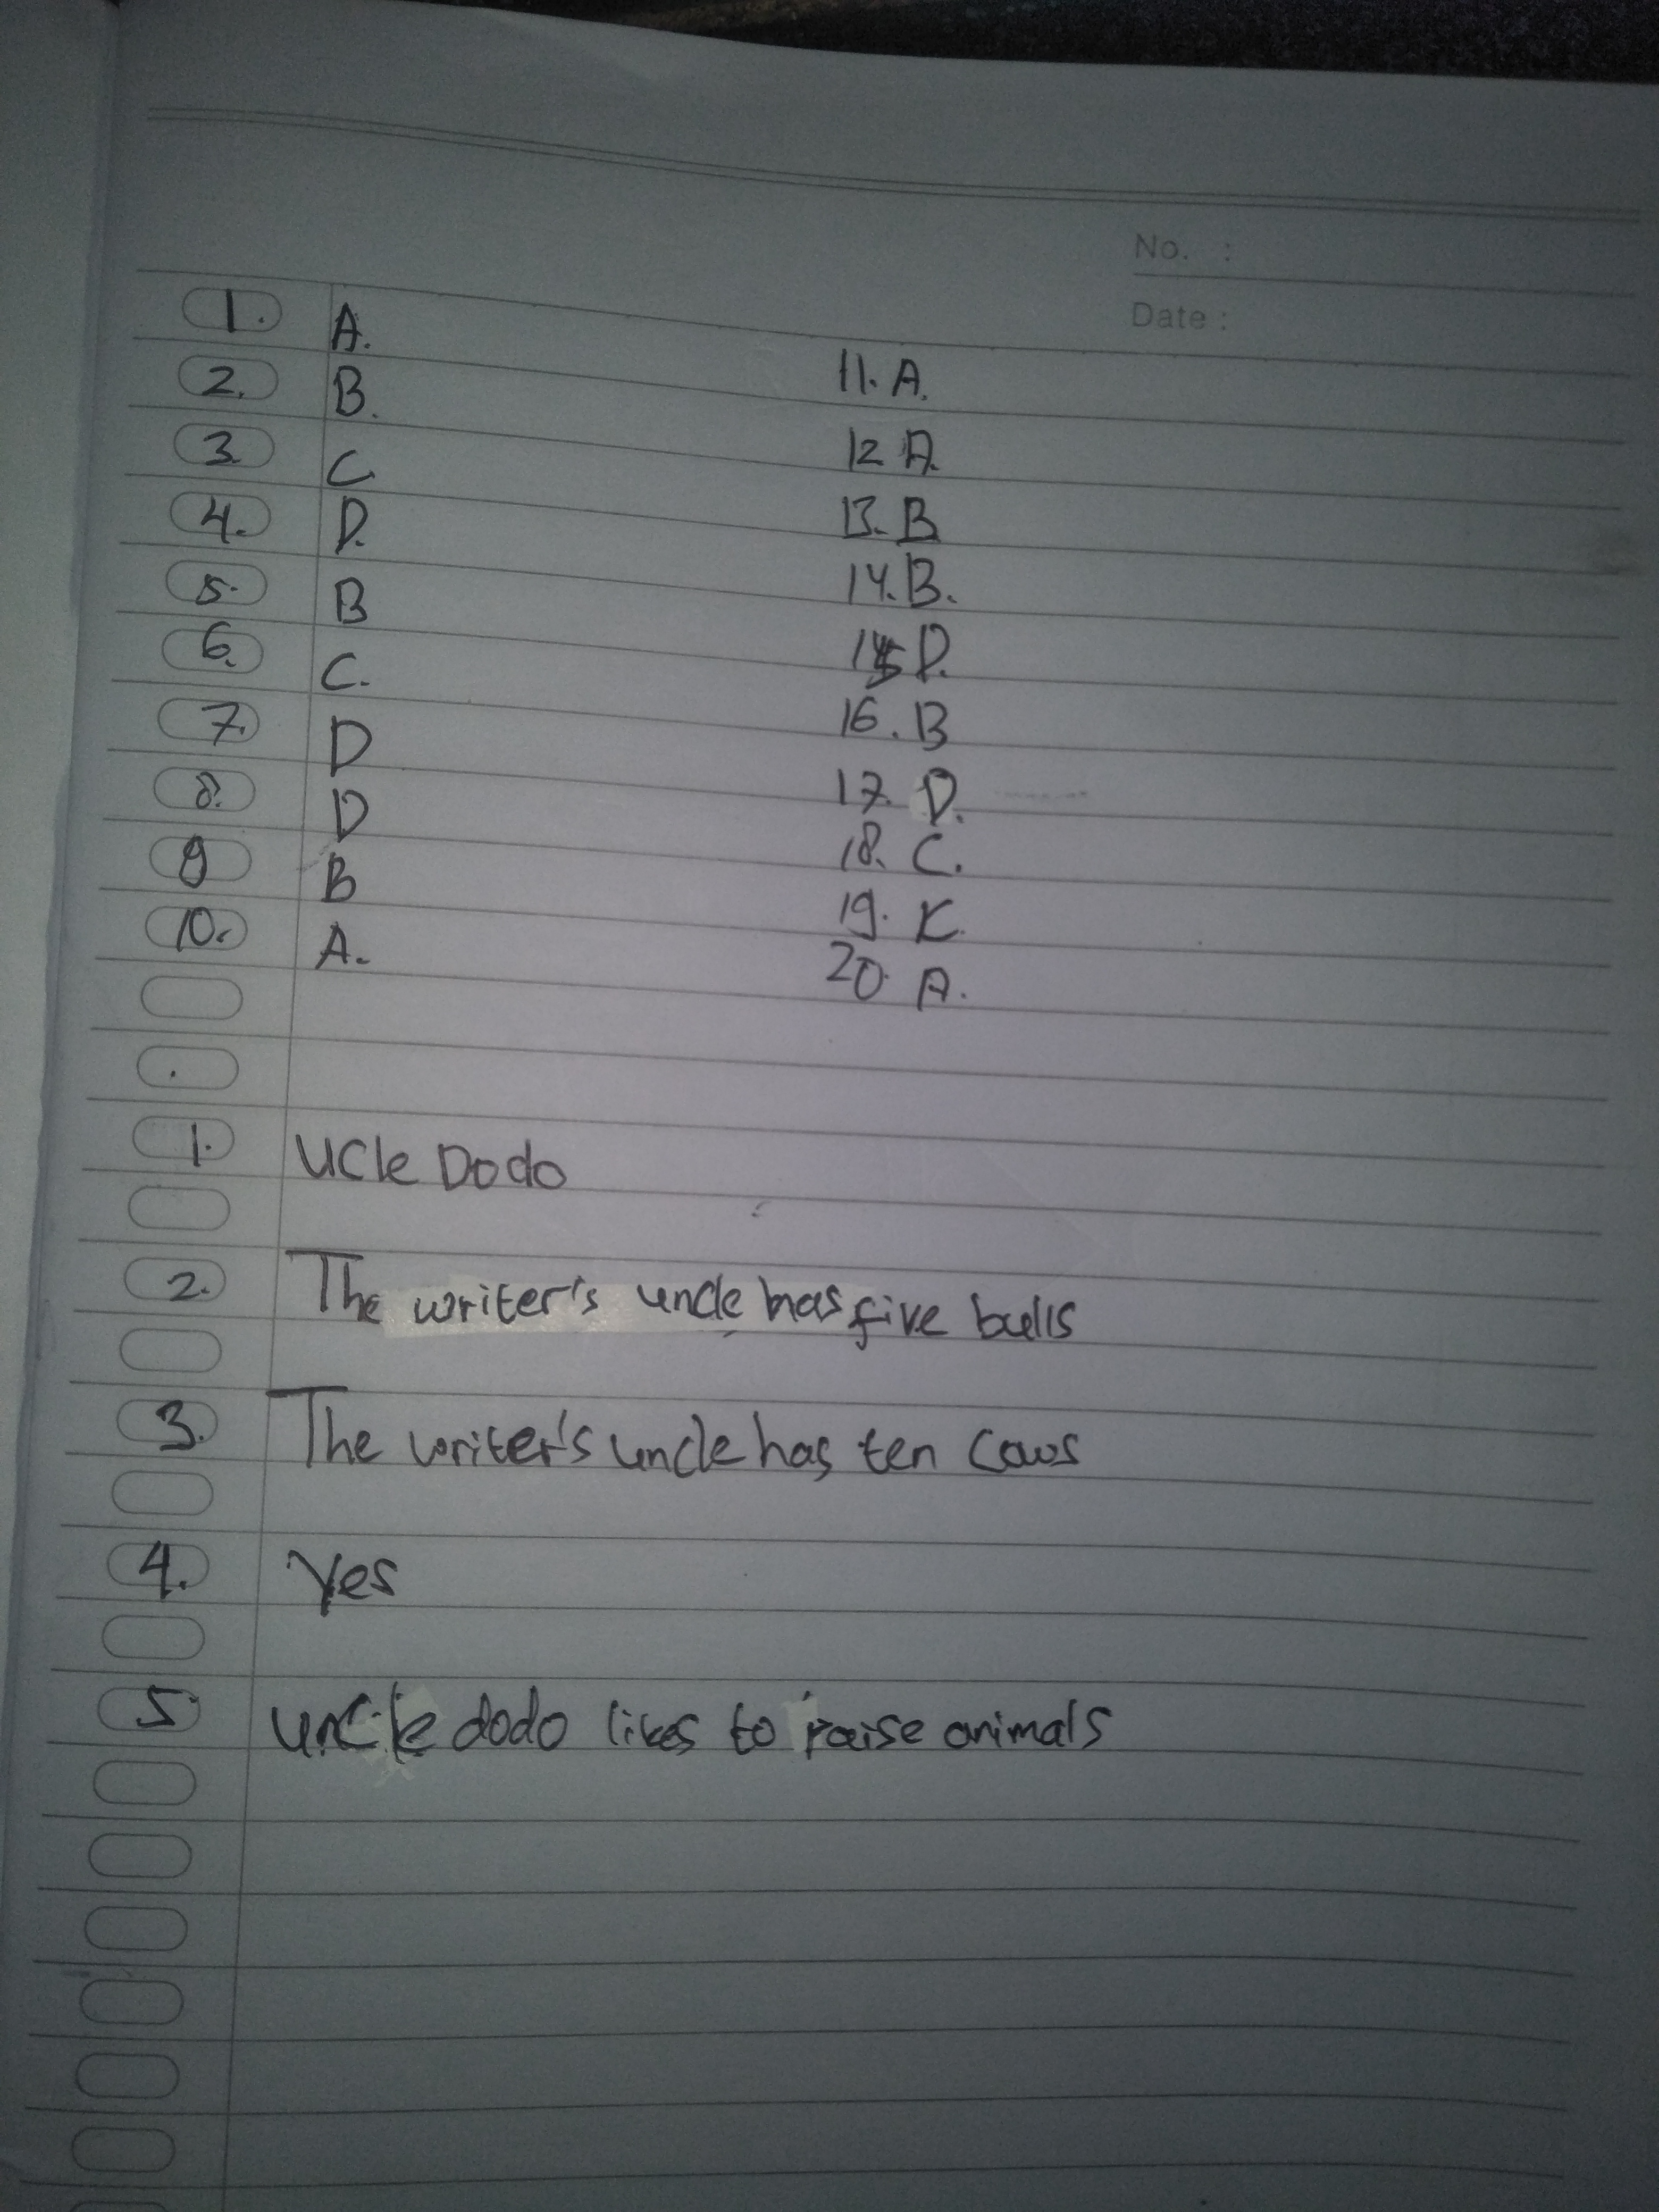 No. :
Date :
1. A.
2. B.
3. C
4. D.
5. B
6. C.
7. D
8. D
9 B
10. A.
11. A.
12 A.
13. B
14. B.
15 D.
16. B
17. D.
18. C.
19. K.
20. A.
1. UCle Dodo
2. The writer's uncle has five bulls
3. The writer's uncle has ten cows
4. Yes
5 uncle dodo likes to raise animals